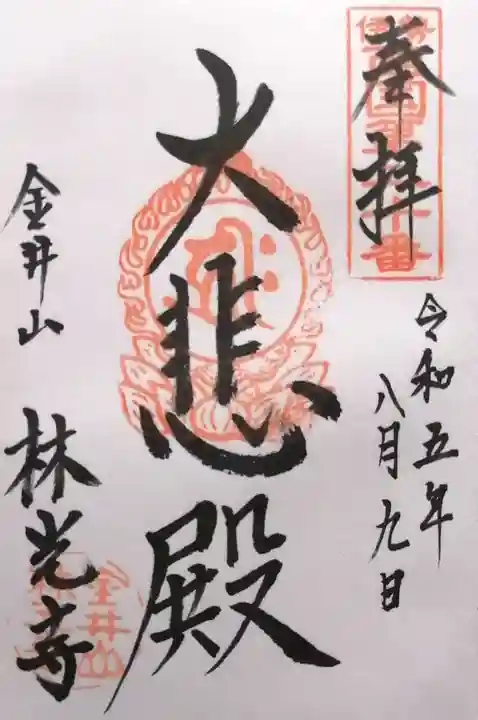 奉拝
令和五年
八月九日
大悲殿
金井山
林光寺
金井山